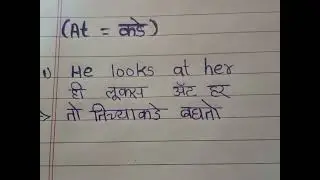 (At = कडे)
1) He looks at her
ही लूक्स ॲट हर
⇒ तो तिच्याकडे बघतो